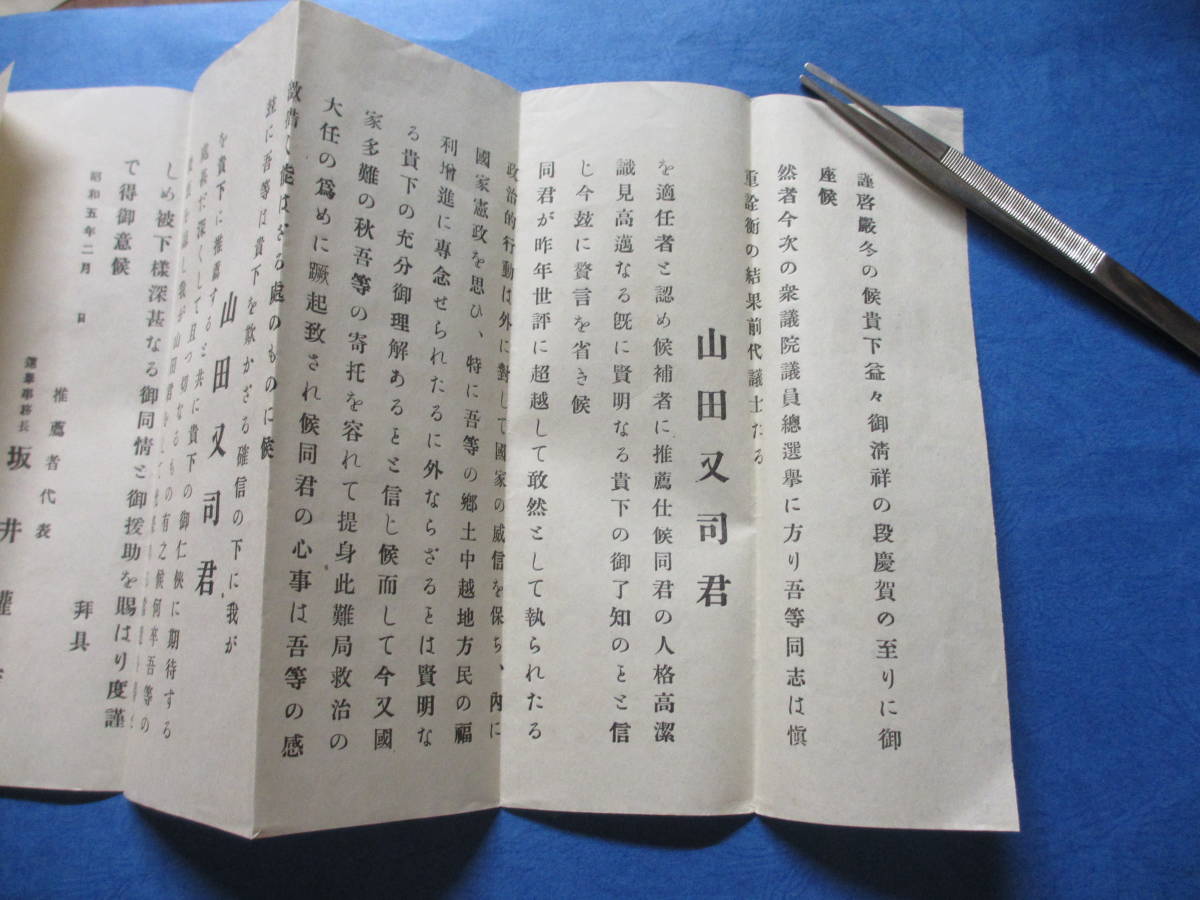 謹啓嚴冬の候貴下益々御淸祥の段慶賀の至りに御
座候
然者今次の衆議院議員總選擧に方り吾等同志は愼
重詮衡の結果前代議士たる
山田又司君
を適任者と認め候補者に推薦仕候同君の人格高潔
識見高邁なる旣に賢明なる貴下の御了知のこと信
じ今玆に贅言を省き候
同君が昨年世評に超越して敢然として執られたる
政治的行動は外に對して國家の威信を保ち、內に
國家憲政を思ひ、特に吾等の鄕土中越地方民の福
利增進に專念せられたるに外ならざるとは賢明な
る貴下の充分御理解あるとと信じ候而して今又國
家多難の秋吾等の寄托を容れて提身此難局救治の
大任の爲めに蹶起致され候同君の心事は吾等の感
激措く能はざる處のものに候
玆に吾等は貴下を欺かざる確信の下に我が
山田又司君
を貴下に推薦すると共に貴下の御仁俠に期待する
處甚だ深くして且つ切なるもの有之候何卒吾等の
しめ被下樣深甚なる御同情と御援助を賜はり度謹
で得御意候
拜具
昭和五年二月 日
推薦者代表
選擧事務長 坂井